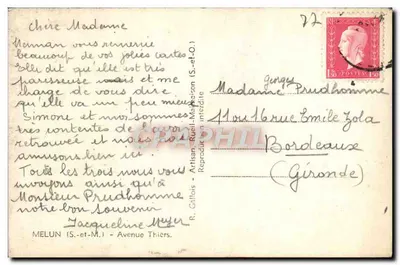 77
Chère Madame
Maman vous remercie
beaucoup de vos jolies cartes
Elle dit qu'elle est très
paresseuse mais et me
charge de vous dire
qu'elle va un peu mieux
Simone et moi sommes
très contentes de l'avoir
retrouvée et nous nous
amusons bien ici
Tous les trois nous vous
envoyons ainsi qu'à
Monsieur Prudhomme
notre bon souvenir
Jacqueline
MELUN (S.-et-M.) - Avenue Thiers.
R. Gallois - Artisan, Rueil-Malmaison (S.-et-O.)
Reproduction interdite
Georges
Madame Prudhomme
11 ou 16 rue Emile Zola
Bordeaux
(Gironde)